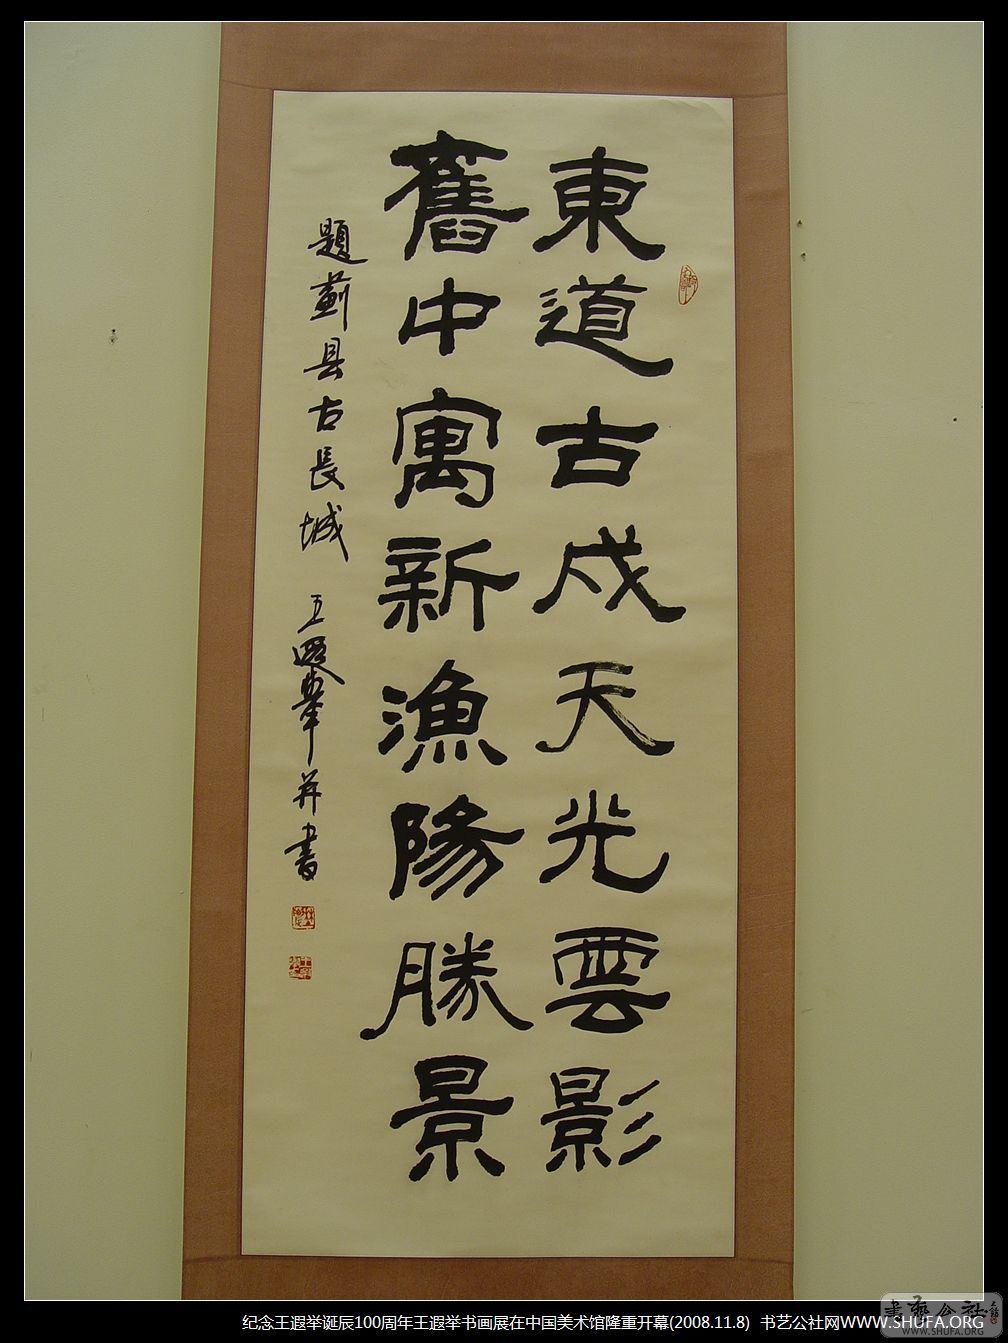 東道古戍天光雲影
舊中寓新漁陽勝景
題薊县古長城 王遐舉并書
纪念王遐举诞辰100周年王遐举书画展在中国美术馆隆重开幕(2008.11.8) 书艺公社网WWW.SHUFA.ORG
書艺公社
WWW.SHUFA.ORG